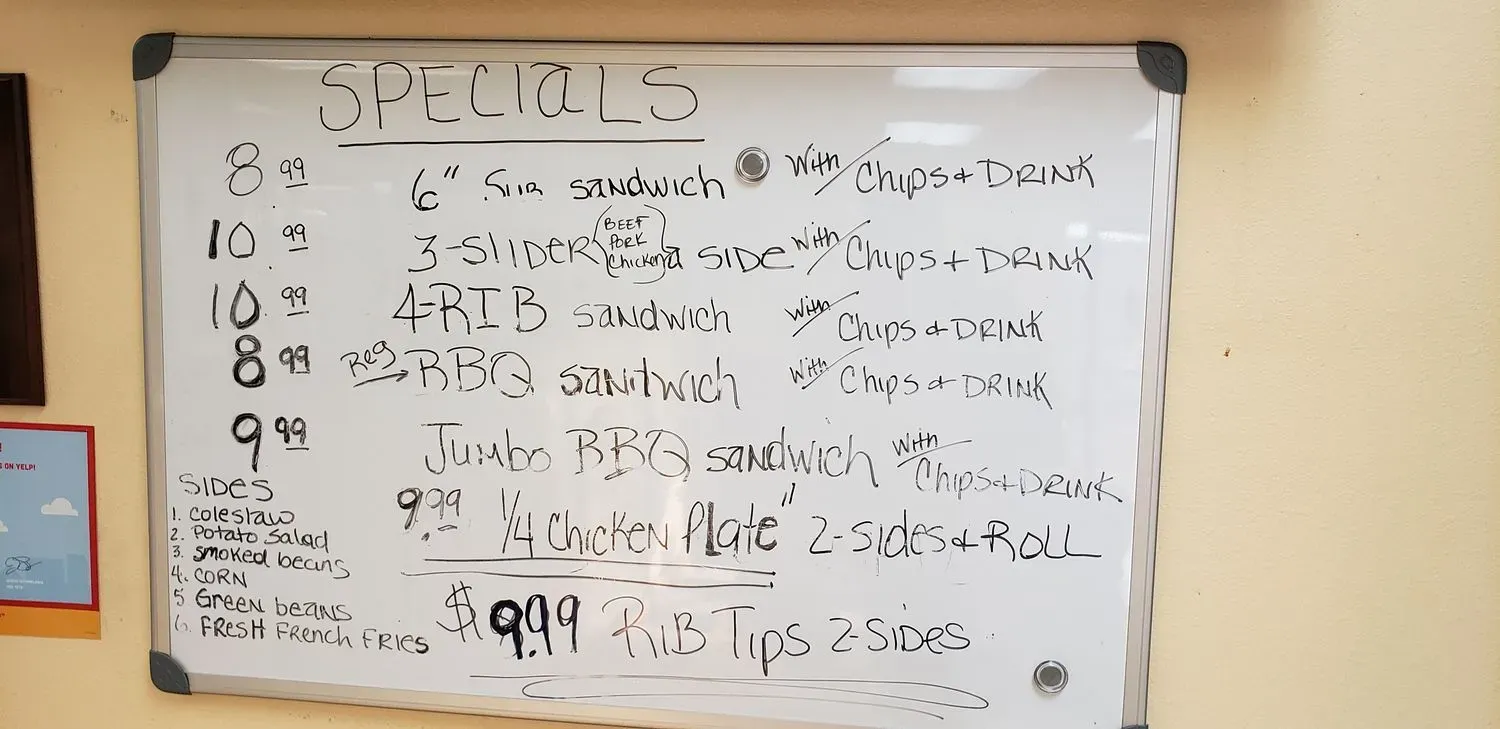 SPECIALS
8 99 6" SUB SANDWICH With CHIPS & DRINK
10 99 3-SLIDER (BEEF PORK Chicken) a SIDE With CHIPS + DRINK
10 99 4-RIB SANDWICH With CHIPS & DRINK
8 99 Reg BBQ SANDWICH With CHIPS & DRINK
9 99 Jumbo BBQ SANDWICH With CHIPS + DRINK
9.99 1/4 CHICKEN Plate" 2-Sides & ROLL
$9.99 RIB TIPS 2-SIDES
SIDES
1. Coleslaw
2. Potato Salad
3. smoked beans
4. CORN
5 Green beans
6. FRESH FRENCH FRIES
ON YELP!